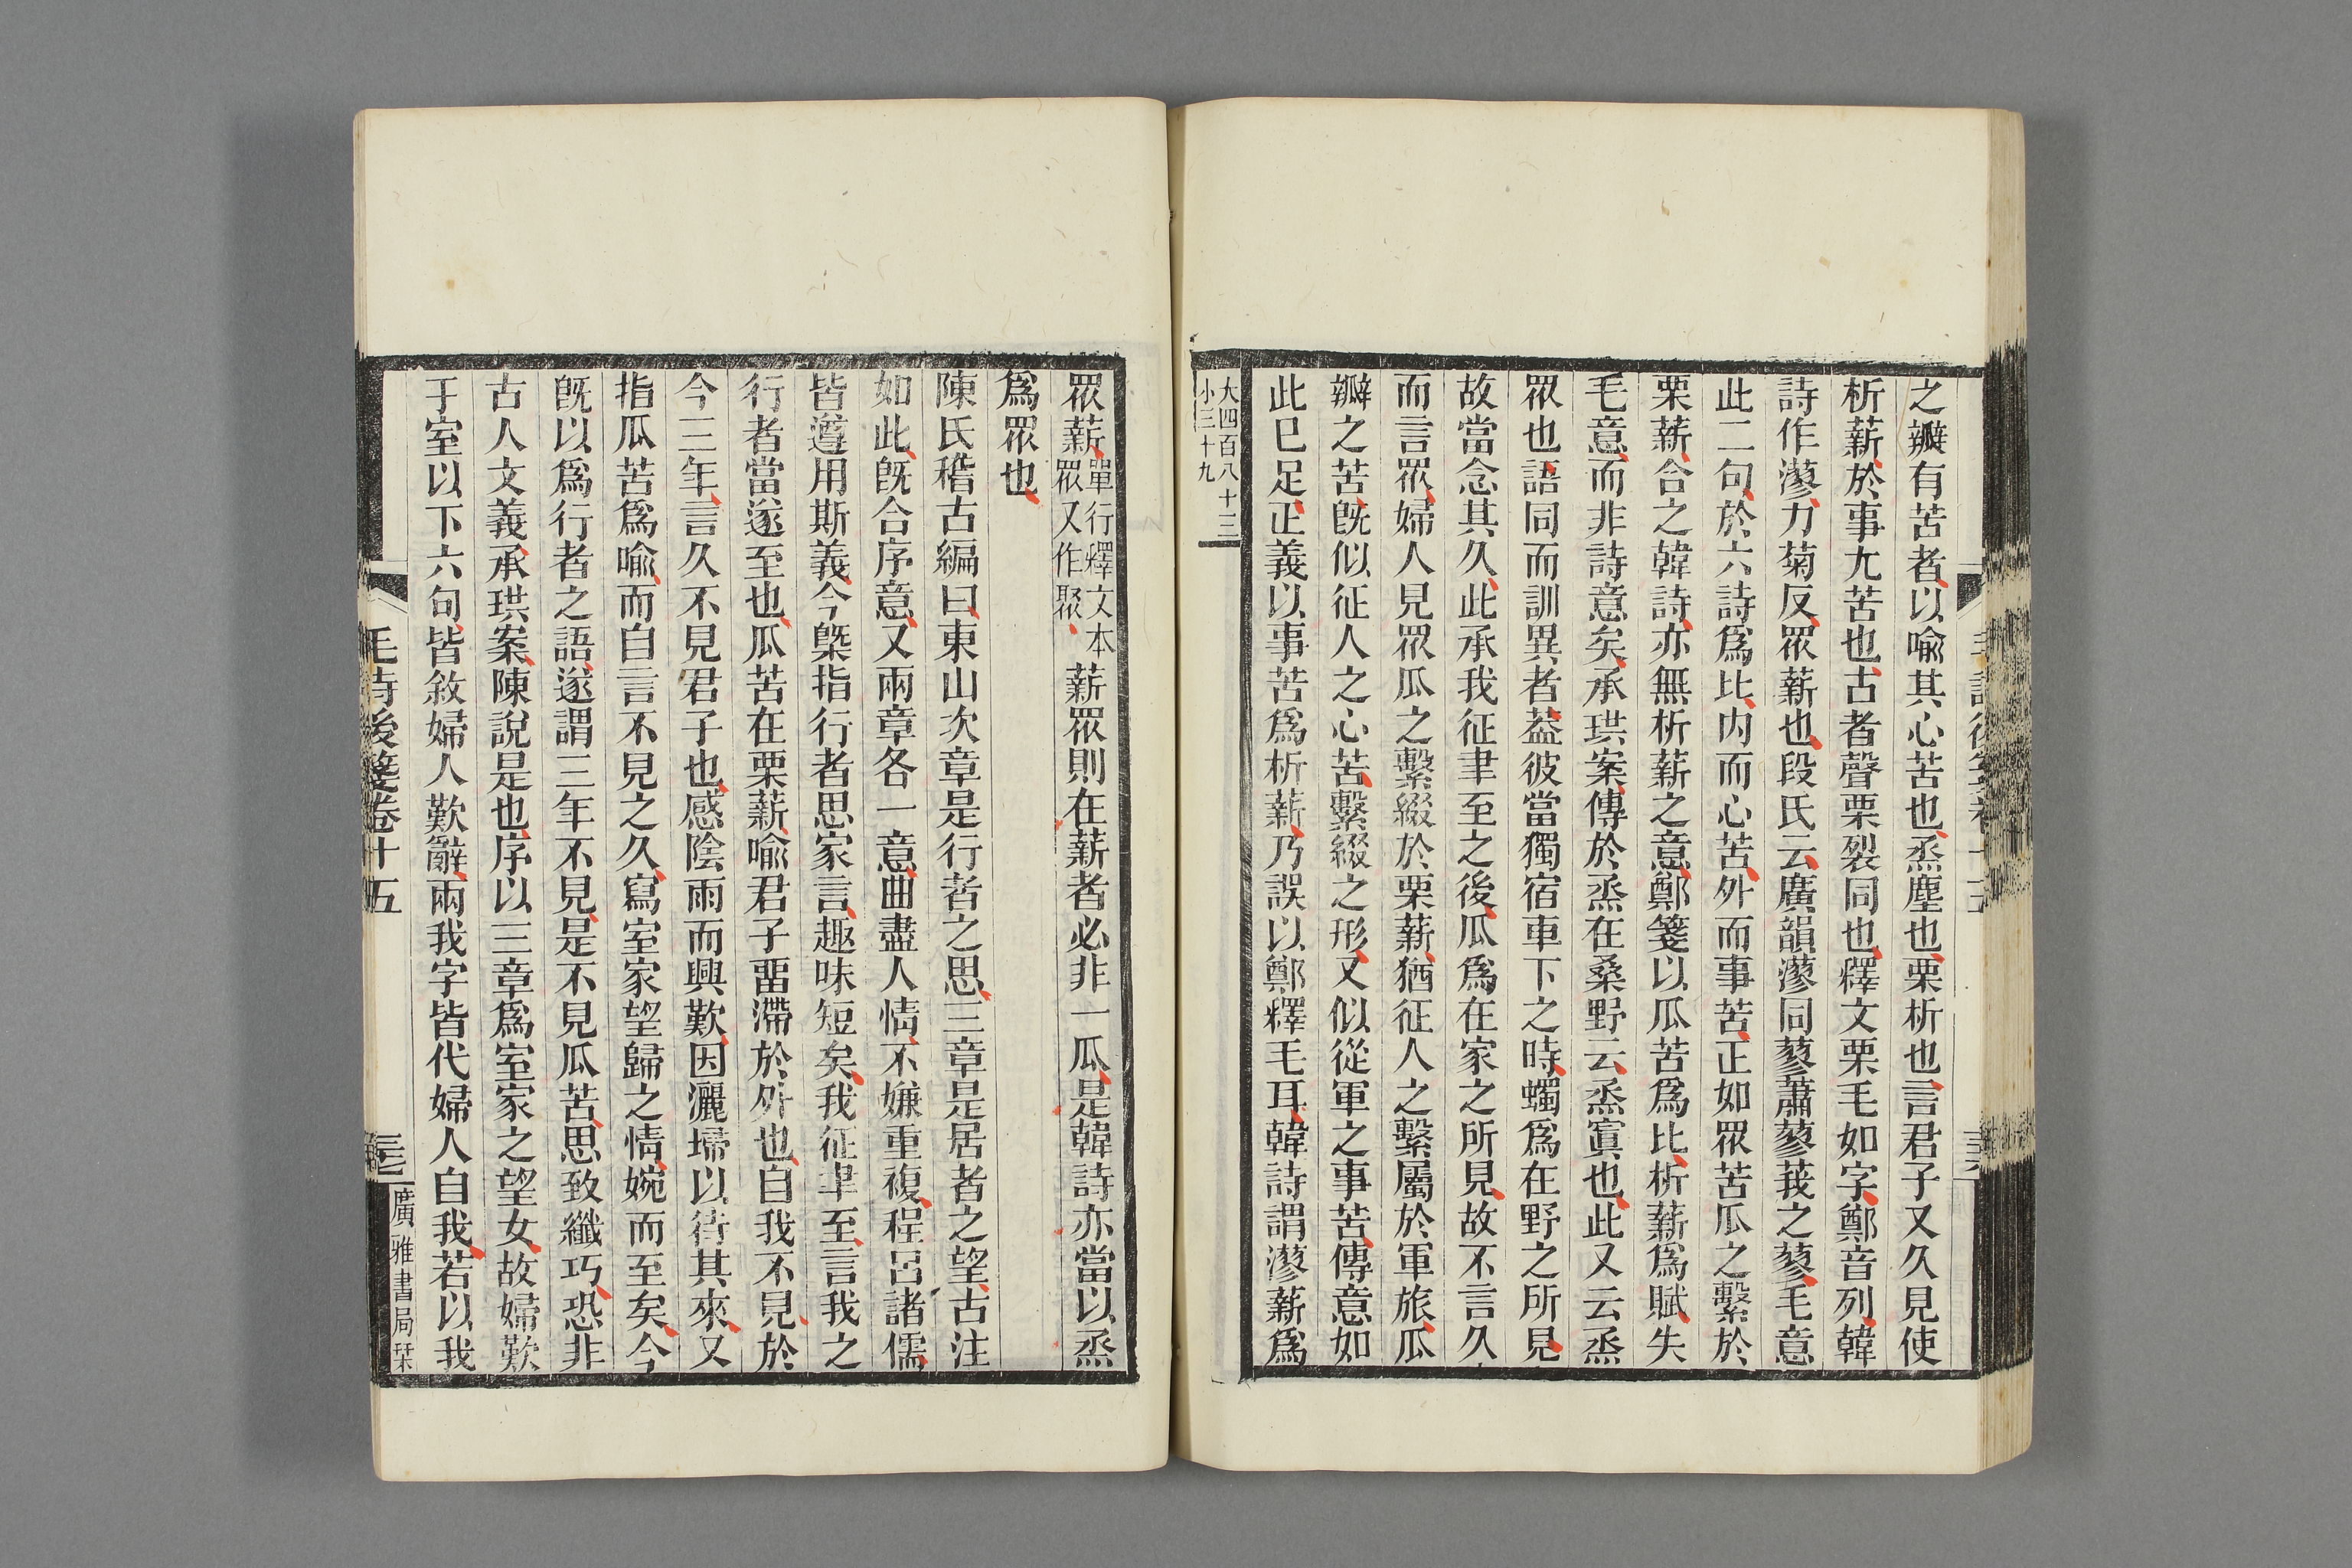 之瓣有苦者以喻其心苦也烝塵也栗析也言君子又久見使
析薪於事尤苦也古者聲栗裂同也釋文栗毛如字鄭音列韓
詩作蓼力菊反眾薪也段氏云廣韻蓼同蓼蕭蓼莪之蓼毛意
此二句於六詩爲比內而心苦外而事苦正如眾苦瓜之繫於
栗薪合之韓詩亦無析薪之意鄭箋以瓜苦爲比析薪爲賦失
毛意而非詩意矣承珙案傳於烝在桑野云烝窴也此又云烝
眾也語同而訓異者葢彼當獨宿車下之時蠋爲在野之所見
故當念其久此承我征聿至之後瓜爲在家之所見故不言久
而言眾婦人見眾瓜之繫綴於栗薪猶征人之繫屬於軍旅瓜
瓣之苦旣似征人之心苦繫綴之形又似從軍之事苦傳意如
此已足正義以事苦爲析薪乃誤以鄭釋毛耳韓詩謂蓼薪爲
大四百八十三
小三十九
眾薪單行釋文本眾又作聚薪眾則在薪者必非一瓜是韓詩亦當以烝
爲眾也
陳氏稽古編曰東山次章是行者之思三章是居者之望古注
如此旣合序意又兩章各一意曲盡人情不嫌重複程呂諸儒
皆遵用斯義今槩指行者思家言趣味短矣我征聿至言我之
行者當遂至也瓜苦在栗薪喻君子畱滯於外也自我不見於
今三年言久不見君子也感陰雨而興歎因灑埽以待其來又
指瓜苦爲喻而自言不見之久寫室家望歸之情婉而至矣今
旣以爲行者之語遂謂三年不見是不見瓜苦思致纖巧恐非
古人文義承珙案陳說是也序以三章爲室家之望女故婦歎
于室以下六句皆敘婦人歎辭兩我字皆代婦人自我若以我
毛詩後箋卷十五
廣雅書局栞